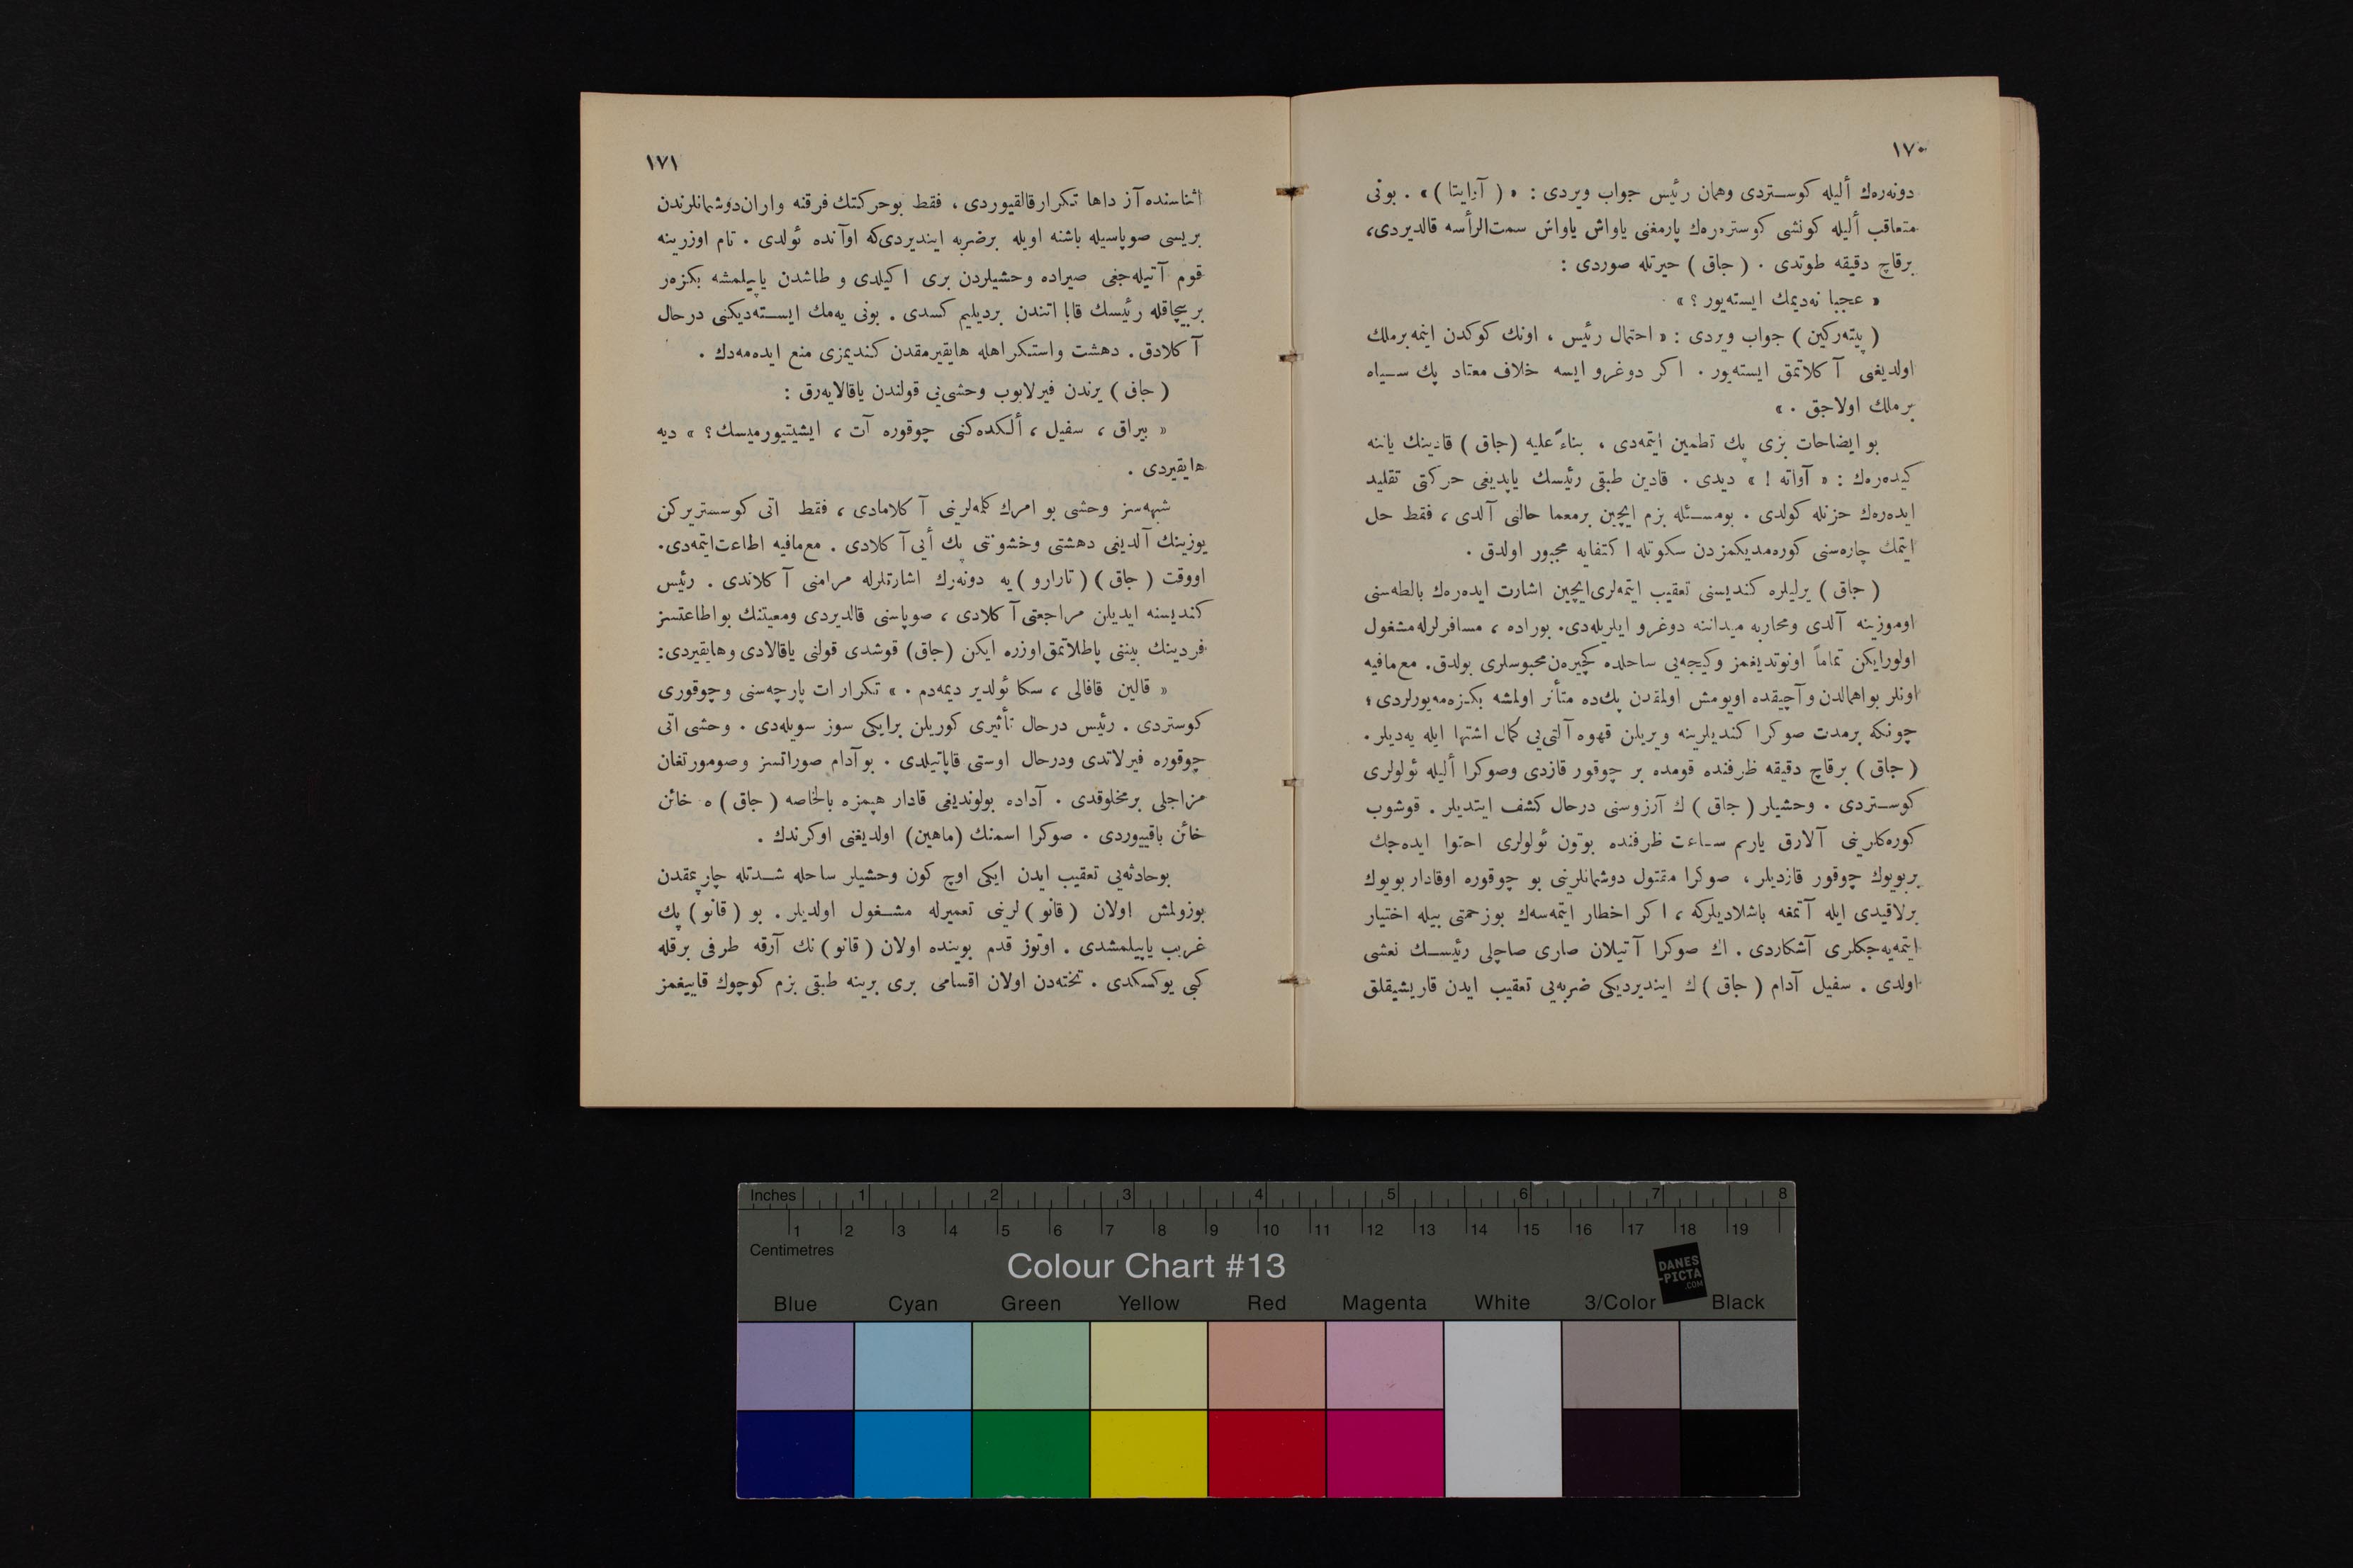 ١٧٠
دونه‌رەك أليله كوستردی وهمان رئيس جواب ويردی : « ( آزايتا ) » . بونی
متعاقب أليله كونشی كوستره‌رەك پارمغنی ياواش ياواش سمت‌الرأسه قالديردی،
برقاچ دقيقه طوتدی . ( جاق ) حيرتله صوردی :
« عجبا نه‌ديمك ايسته‌يور ؟ »
( پيته‌ركين ) جواب ويردی : « احتمال رئيس ، اونك كوكدن اينمه برملك
اولديغنی آكلاتمق ايسته‌يور . اكر دوغرو ايسه خلاف معتاد پك سياه
برملك اولاجق . »
بو ايضاحات بزی پك تطمين ايتمه‌دی ، بناءً عليه (جاق ) قادينك ياننه
كيده‌رەك : « آواته ! » ديدی . قادين طبقی رئيسك ياپديغی حركتی تقليد
ايده‌رەك حزنله كولدی . بومسئله بزم ايچين برمعما حالنی آلدی ، فقط حل
ايتمك چاره‌سنی كوره‌مديكمزدن سكوتله اكتفايه مجبور اولدق .
( جاق ) يرليلره كنديسنی تعقيب ايتمه‌لری‌ايچين اشارت ايده‌رەك بالطه‌سنی
اوموزينه آلدی ومحاربه ميداننه دوغرو ايلريله‌دی. بوراده ، مسافرلرله مشغول
اولورايكن تماماً اونوتديغمز وكيجه‌يی ساحلده كچيرەن محبوسلری بولدق. مع‌مافيه
اونلر بواهمالدن وآچيقده اويومش اولمقدن پك‌ده متأثر اولمشه بكزه‌مه‌يورلردی ؛
چونكه برمدت صوكرا كنديلرينه ويريلن قهوه آلتی‌يی كمال اشتها ايله يه‌ديلر.
( جاق ) برقاچ دقيقه ظرفنده قومده بر چوقور قازدی وصوكرا أليله ئولولری
كوستردی . وحشيلر ( جاق ) ك آرزوسنی درحال كشف ايتديلر . قوشوب
كوره‌كلرينی آلارق يارم ساعت ظرفنده بوتون ئولولری احتوا ايده‌جك
بربويوك چوقور قازديلر ، صوكرا مقتول دوشمانلرينی بو چوقوره اوقادار بويوك
برلاقيدی ايله آتمغه باشلاديلركه ، اكر اخطار ايتمه‌سه‌ك بوزحمتی بيله اختيار
ايتمه‌يه‌جكلری آشكاردی . اك صوكرا آتيلان صاری صاچلی رئيسك نعشی
اولدی . سفيل آدام ( جاق ) ك اينديرديكی ضربه‌يی تعقيب ايدن قاريشيقلق
١٧١
اثناسنده آز داها تكرارقالقيوردی ، فقط بوحركتك فرقنه واران‌دوشمانلرندن
بريسی صوپاسيله باشنه اويله برضربه اينديردی‌كه اوآنده ئولدی . تام اوزرينه
قوم آتيله‌جغی صيراده وحشيلردن بری اكيلدی و طاشدن ياپيلمشه بكزەر
بريچاقله رئيسك قابا اتندن برديليم كسدی . بونی يه‌مك ايسته‌ديكنی درحال
آكلادق . دهشت واستكراهله هايقيرمقدن كنديمزی منع ايده‌مه‌دك .
( جاق ) يرندن فيرلايوب وحشی‌يی قولندن ياقالايه‌رق :
« بيراق ، سفيل ، ألكده‌كنی چوقوره آت ، ايشيتيورميسك ؟ » ديه
هايقيردی .
شبهه‌سز وحشی بو امرك كلمه‌لرينی آكلامادی ، فقط اتی كوستريركن
يوزينك آلديغی دهشتی وخشونتی پك أيی آكلادی . مع‌مافيه اطاعت‌ايتمه‌دی.
اووقت ( جاق ) ( تارارو ) يه دونه‌رك اشارتلرله مرامنی آكلاتدی . رئيس
كنديسنه ايديلن مراجعتی آكلادی ، صوپاسنی قالديردی ومعيتنك بواطاعتسز
فردينك بيننی پاطلاتمق‌اوزره ايكن (جاق) قوشدی قولنی ياقالادی وهايقيردی:
« قالين قافالی ، سكا ئولدير ديمه‌دم . » تكرار ات پارچه‌سنی وچوقوری
كوستردی . رئيس درحال تأثيری كوريلن برايكی سوز سويله‌دی . وحشی اتی
چوقوره فيرلاتدی ودرحال اوستی قاپاتيلدی . بوآدام صوراتسز وصومورتغان
مزاجلی برمخلوقدی . آداده بولونديغی قادار هپمزه بالخاصه ( جاق ) ه خائن
خائن باقييوردی . صوكرا اسمنك (ماهين) اولديغنی اوكرندك .
بوحادثه‌يی تعقيب ايدن ايكی اوچ كون وحشيلر ساحله شدتله چارپمقدن
بوزولمش اولان ( قانو ) لرنی تعميرله مشغول اولديلر . بو ( قانو ) پك
غريب ياپيلمشدی . اوتوز قدم بوينده اولان ( قانو ) نك آرقه طرفی برقله
كبی يوكسكدی . تخته‌دن اولان اقسامی بری برينه طبقی بزم كوچوك قاييغمز
Inches 1 2 3 4 5 6 7 8
1 2 3 4 5 6 7 8 9 10 11 12 13 14 15 16 17 18 19
Centimetres
Colour Chart #13
DANES
-PICTA
.COM
Blue Cyan Green Yellow Red Magenta White 3/Color Black